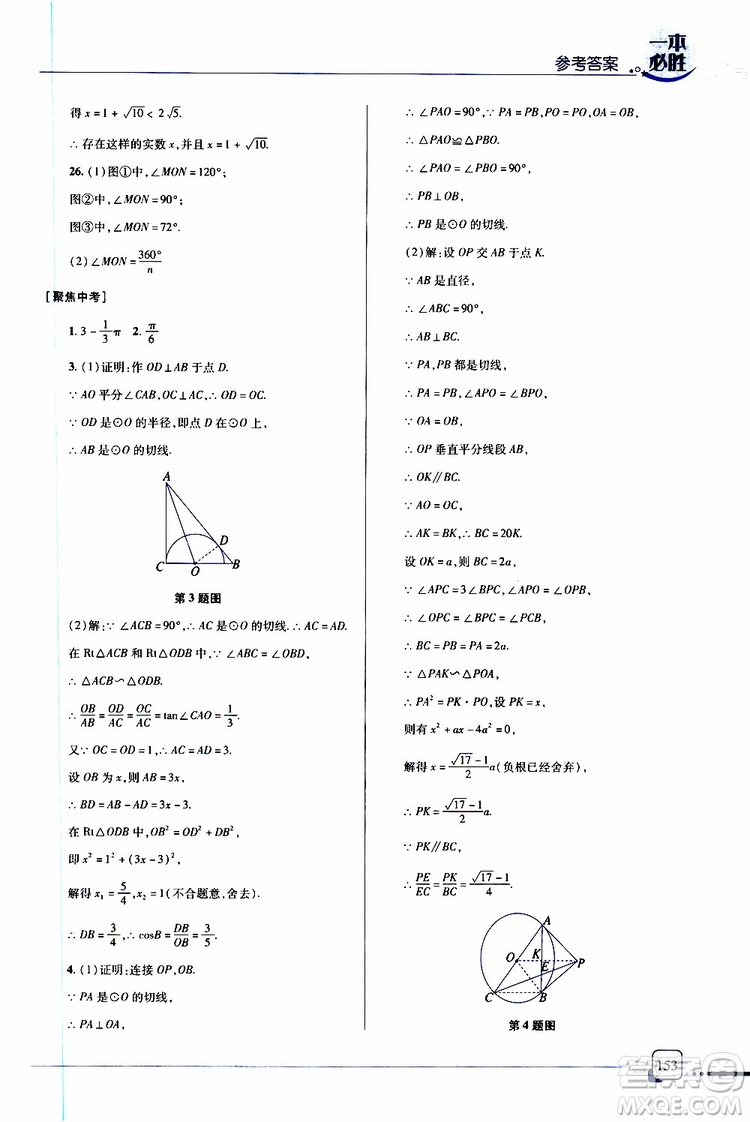 参考答案
一本
必胜
得 x = 1 + √10 < 2√5.
∴ 存在这样的实数 x,并且 x = 1 + √10.
26. (1)图①中,∠MON = 120°;
图②中,∠MON = 90°;
图③中,∠MON = 72°.
(2)∠MON = 360°/n
[聚焦中考]
1. 3 - 1/3 π  2. π/6
3. (1)证明:作 OD⊥AB 于点 D.
∵ AO 平分∠CAB,OC⊥AC,∴ OD = OC.
∵ OD 是⊙O 的半径,即点 D 在⊙O 上,
∴ AB 是⊙O 的切线.
A
D
C
O
B
第3题图
(2)解:∵ ∠ACB = 90°,∴ AC 是⊙O 的切线.∴ AC = AD.
在 Rt△ACB 和 Rt△ODB 中,∵ ∠ABC = ∠OBD,
∴ △ACB∽△ODB.
∴ OB/AB = OD/AC = OC/AC = tan∠CAO = 1/3.
又∵ OC = OD = 1,∴ AC = AD = 3.
设 OB 为 x,∴ AB = 3x,
∴ BD = AB - AD = 3x - 3.
在 Rt△ODB 中,OB² = OD² + DB²,
即 x² = 1² + (3x - 3)²,
解得 x₁ = 5/4, x₂ = 1(不合题意,舍去).
∴ DB = 3/4, ∴ cosB = DB/OB = 3/5.
4. (1)证明:连接 OP,OB.
∵ PA 是⊙O 的切线,
∴ PA⊥OA,
∴ ∠PAO = 90°,∵ PA = PB,PO = PO,OA = OB,
∴ △PAO≌△PBO.
∴ ∠PAO = ∠PBO = 90°,
∴ PB⊥OB,
∴ PB 是⊙O 的切线.
(2)解:设 OP 交 AB 于点 K.
∵ AB 是直径,
∴ ∠ABC = 90°,
∴ AB⊥BC.
∵ PA,PB 都是切线,
∴ PA = PB,∠APO = ∠BPO,
∵ OA = OB,
∴ OP 垂直平分线段 AB,
∴ OK∥BC.
∵ AO = OC,
∴ AK = BK,∴ BC = 2OK.
设 OK = a,则 BC = 2a,
∵ ∠APC = 3∠BPC,∠APO = ∠OPB,
∴ ∠OPC = ∠BPC = ∠PCB,
∴ BC = PB = PA = 2a.
∵ △PAK∽△POA,
∴ PA² = PK · PO,设 PK = x,
则有 x² + ax - 4a² = 0,
解得 x = (√17 - 1)/2 a(负根已经舍弃),
∴ PK = (√17 - 1)/2 a.
∵ PK∥BC,
∴ PE/EC = PK/BC = (√17 - 1)/4.
A
O
K
E
P
C
B
第4题图
153
答案圈
MXQE.COM